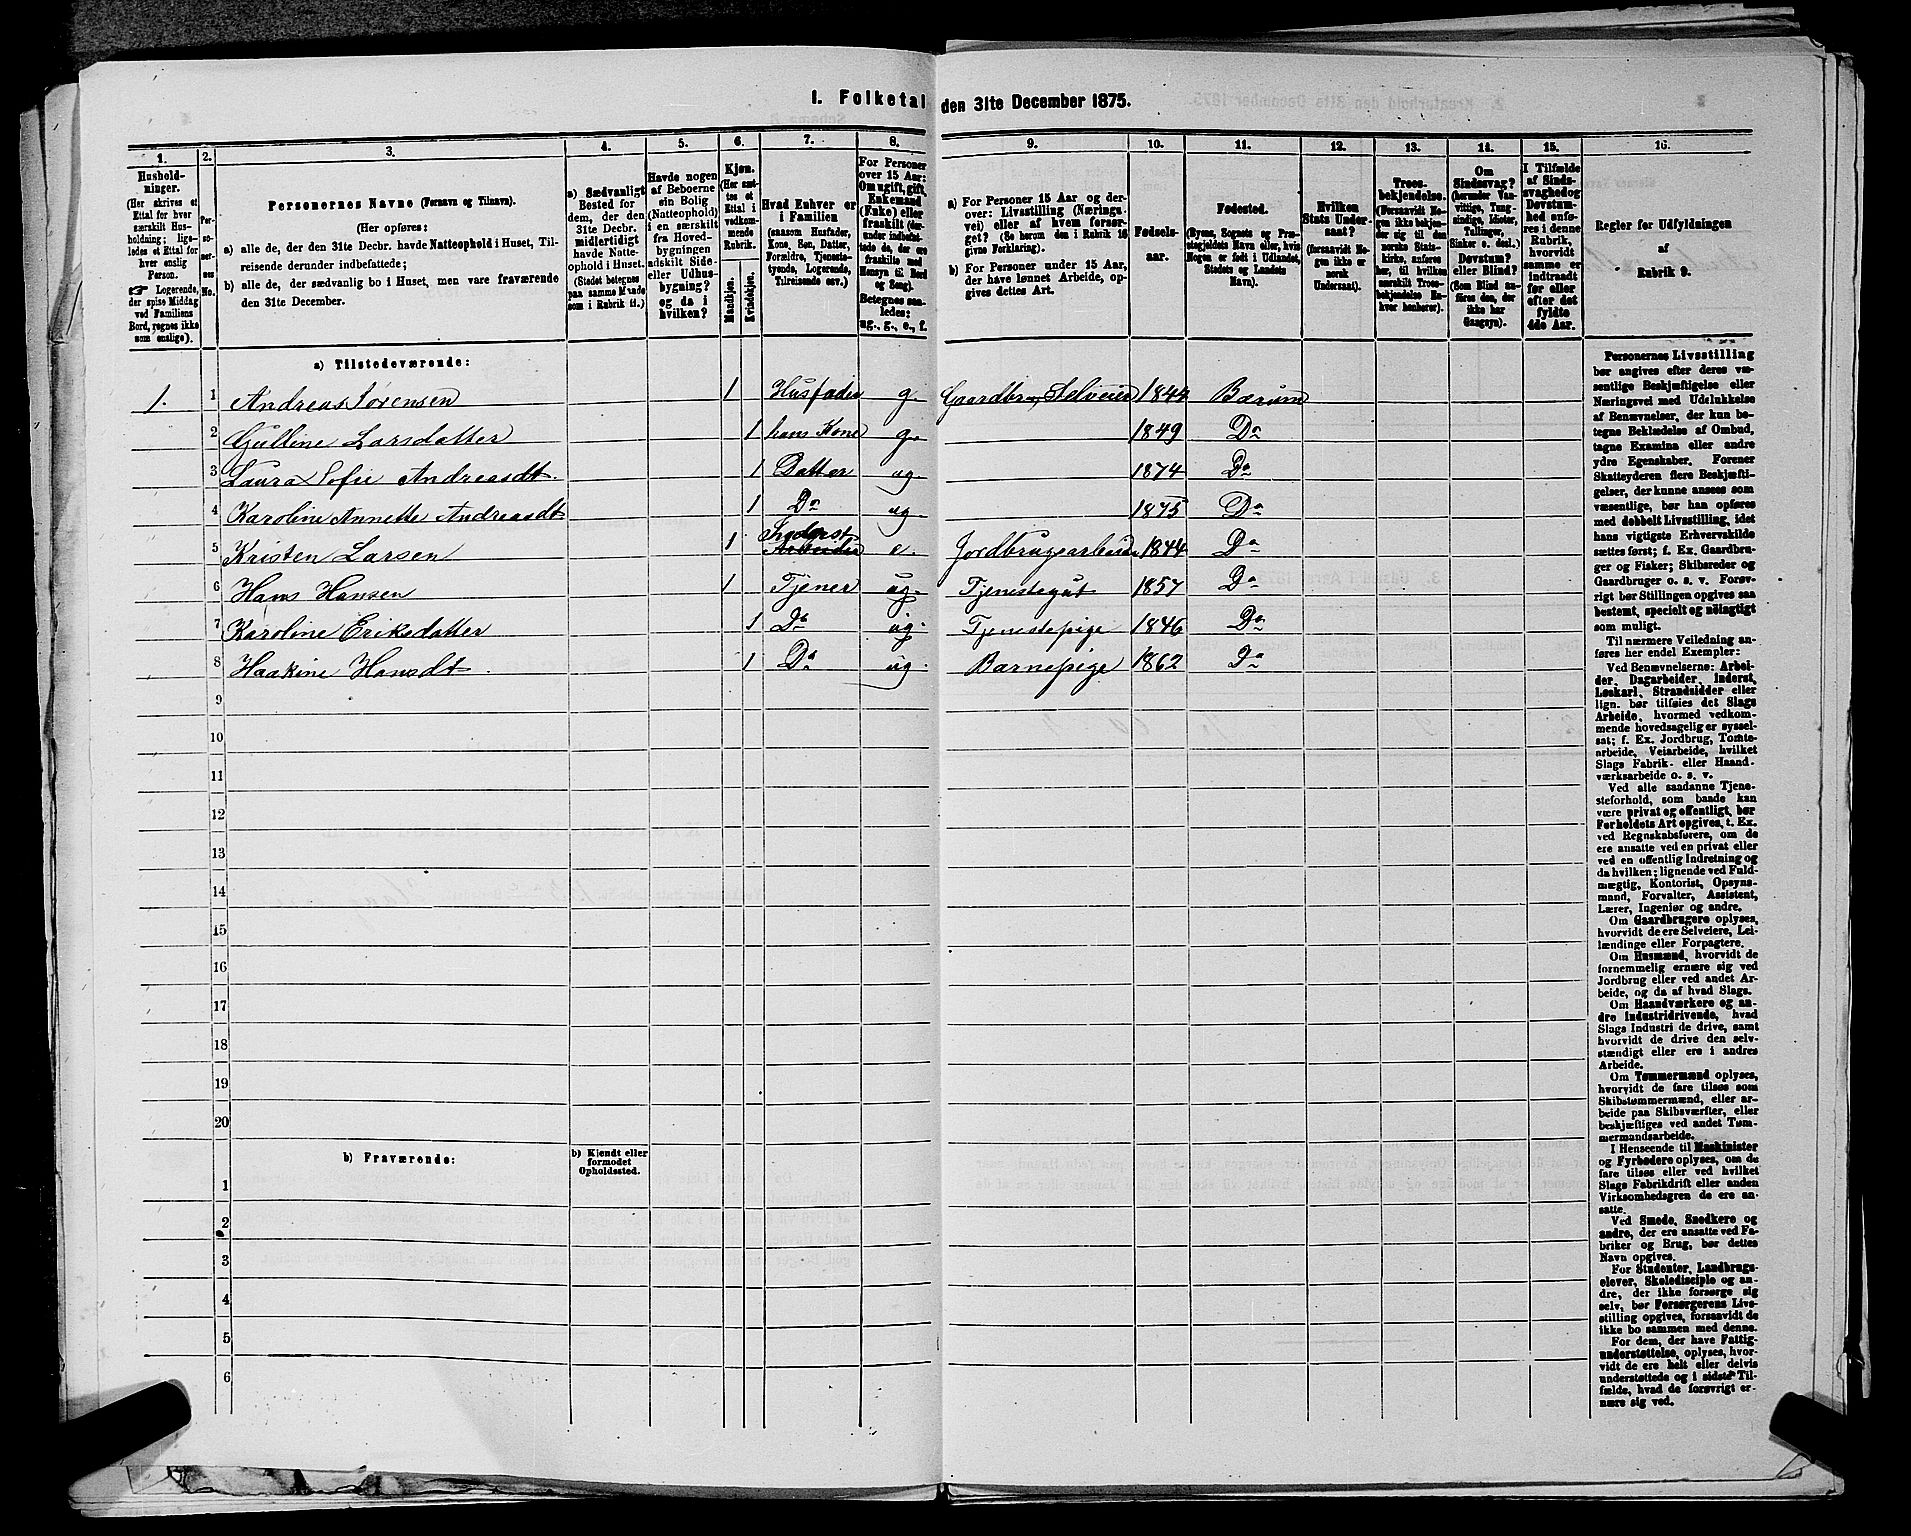 1. Folketal den 31te December 1875.
1. 2. 3. 4. 5. 6. 7. 8. 9. 10. 11. 12. 13. 14. 15. 16.
Hushold-
ninger.
(Her skrives et
Ettal for hver
særskilt Hus-
holdning; lige-
ledes et Ettal for
hver enslig
Person.
☞ Logerende,
der spise Middag
ved Familiens
Bord, regnes ikke
som enslige).
Per-
so-
ner-
nes
No.
Personernes Navne (Fornavn og Tilnavn).
(Her opføres:
a) alle de, der den 31te Decbr. havde Natteophold i Huset, Til-
reisende derunder indbefattede;
b) alle de, der sædvanlig bo i Huset, men vare fraværende
den 31te December.
a) Sædvanligt
Bosted for
dem, der den
31te Decbr.
midlertidigt
havde Natte-
ophold i Huset.
(Stedet betegnes
paa samme Maade
som i Rubrik 11.)
Havde nogen
af Beboerne
sin Bolig
(Natteophold)
i en særskilt
fra Hoved-
bygningen
adskilt Side-
eller Udhus-
bygning?
og da i
hvilken?
Kjøn.
(Her sæt-
tes et
Ettal i
vedkom-
mende
Rubrik.
Mandkjøn.
Kvindekjøn.
Hvad Enhver er
i Familien
(saasom Husfader,
Kone, Søn, Datter,
Forældre, Tjeneste-
tyende, Logerende,
Tilreisende osv.)
For Personer
over 15 Aar:
Om ugift, gift,
Enkemand
(Enke) eller
fraskilt (der-
under indbefat-
tede de, der ere
fraskilte med
Hensyn til Bord
og Seng).
Betegnes saa-
ledes:
ug., g., e., f.
a) For Personer 15 Aar og der-
over: Livsstilling (Nærings-
vei) eller af hvem forsør-
get? (Se herom den i Rubrik 16
givne Forklaring).
b) For Personer under 15 Aar,
der have lønnet Arbeide, op-
gives dettes Art.
Fødsels-
aar.
Fødested.
(Byens, Sognets og Præ-
stegjeldets Navn eller, hvis
Nogen er født i Udlandet,
Stedets og Landets
Navn).
Hvilken
Stats Under-
saat?
(forsaavidt No-
gen ikke er
norsk
Undersaat).
Troes-
bekjendelse.
(Forsaavidt No-
gen ikke bekjen-
der sig til den
norske Stats-
kirke, anføres
her, til hvilken
særskilt Troes-
bekjendelse En-
hver henhører).
Om
Sindssvag?
(herunder Van-
vittige, Tung-
sindige, Idioter,
Tullinger,
Sinker o. desl.)
Døvstum?
eller Blind?
(Som Blind an-
føres den, der
ikke har
Gangsyn).
I Tilfælde
af Sinds-
svaghed og
Døvstum-
hed anfø-
res i denne
Rubrik,
hvorvidt
samme er
indtraadt
før eller
efter det
fyldte
4de Aar.
Regler for Udfyldningen
af
Rubrik 9.
a) Tilstedeværende:
1. 1 Andreas Sørensen 1 Husfader g. Gaardbr. Selveier 1844 Bærum
2 Gulline Larsdatter 1 hans Kone g. 1849 Do
3 Laura Sofie Andreasdt. 1 Datter ug. 1874 Do
4 Karoline Annette Andreasdt 1 Do ug. 1875 Do
5 Kristen Larsen 1 Inderst Arbeider e. Jordbrugsarbeider 1844 Do
6 Hans Hansen 1 Tjener ug. Tjenestegut 1857 Do
7 Karoline Eriksdatter 1 Do ug. Tjenestepige 1846 Do
8 Haakine Hansdt. 1 Do ug. Barnepige 1862 Do
9
10
11
12
13
14
15
16
17
18
19
20
b) Fraværende:
b) Kjendt eller
formodet
Opholdssted.
1
2
3
4
5
6
Personernes Livsstilling
bør angives efter deres væ-
sentlige Beskjæftigelse eller
Næringsvei med Udelukkelse
af Benævnelser, der kun be-
tegne Beklædelse af Ombud,
tagne Examina eller andre
ydre Egenskaber. Forener
Skatteyderen flere Beskjæfti-
gelser, der kunne ansees som
væsentlige, bør han opføres
med dobbelt Livsstilling, idet
hans vigtigste Erhvervskilde
sættes først; f. Ex. Gaardbru-
ger og Fisker; Skibsreder og
Gaardbruger o. s. v. Forøv-
rigt bør Stillingen opgives saa
bestemt, specielt og nøiagtigt
som muligt.
Til nærmere Veiledning an-
føres her endel Exempler:
Ved Benævnelserne: Arbei-
der, Dagarbeider, Inderst,
Løskarl, Strandsidder eller
lign. bør tilføies det Slags
Arbeide, hvormed vedkom-
mende hovedsagelig er syssel-
sat; f. Ex. Jordbrug, Tomte-
arbeide, Veiarbeide, hvilket
Slags Fabrik- eller Haand-
værksarbeide o. s. v.
Ved alle saadanne Tjene-
steforhold, som baade kan
være privat og offentligt, bør
Forholdets Art opgives, t. Ex.
ved Regnskabsførere, om de
ere ansatte ved en privat eller
ved en offentlig Indretning og
da hvilken; lignende ved Fuld-
mægtig, Kontorist, Opsyns-
mand, Forvalter, Assistent,
Lærer, Ingeniør og andre.
Om Gaardbrugere oplyses,
hvorvidt de ere Selveiere, Lei-
lændinge eller Forpagtere.
Om Husmænd, hvorvidt de
fornemmelig ernære sig ved
Jordbrug eller ved andet Ar-
beide, og da af hvad Slags.
Om Haandværkere og an-
dre Industridrivende, hvad
Slags Industri de drive, samt
hvorvidt de drive den selv-
stændigt eller ere i andres
Arbeide.
Om Tømmermænd oplyses,
hvorvidt de fare tilsøs som
Skibstømmermænd, eller ar-
beide paa Skibsværfter, eller
beskjæftiges ved andet Tøm-
mermandsarbeide.
I Henseende til Maskinister
og Fyrbødere oplyses, om de
fare tilsøs eller ved hvilket
Slags Fabrikdrift eller anden
Virksomhedsgren de ere an-
satte.
Ved Smede, Snedkere og
andre, der ere ansatte ved Fa-
briker og Brug, bør dettes
Navn opgives.
For Studenter, Landbrugs-
elever, Skoledisciple og an-
dre, der ikke forsørge sig
selv, bør Forsørgerens Livs-
stilling opgives, forsaavidt de
ikke bo sammen med denne.
For dem, der have Fattig-
understøttelse, oplyses, hvor-
vidt de ere helt eller delvis
understøttede og i sidste Til-
fælde, hvad de forøvrigt er-
nære sig ved.